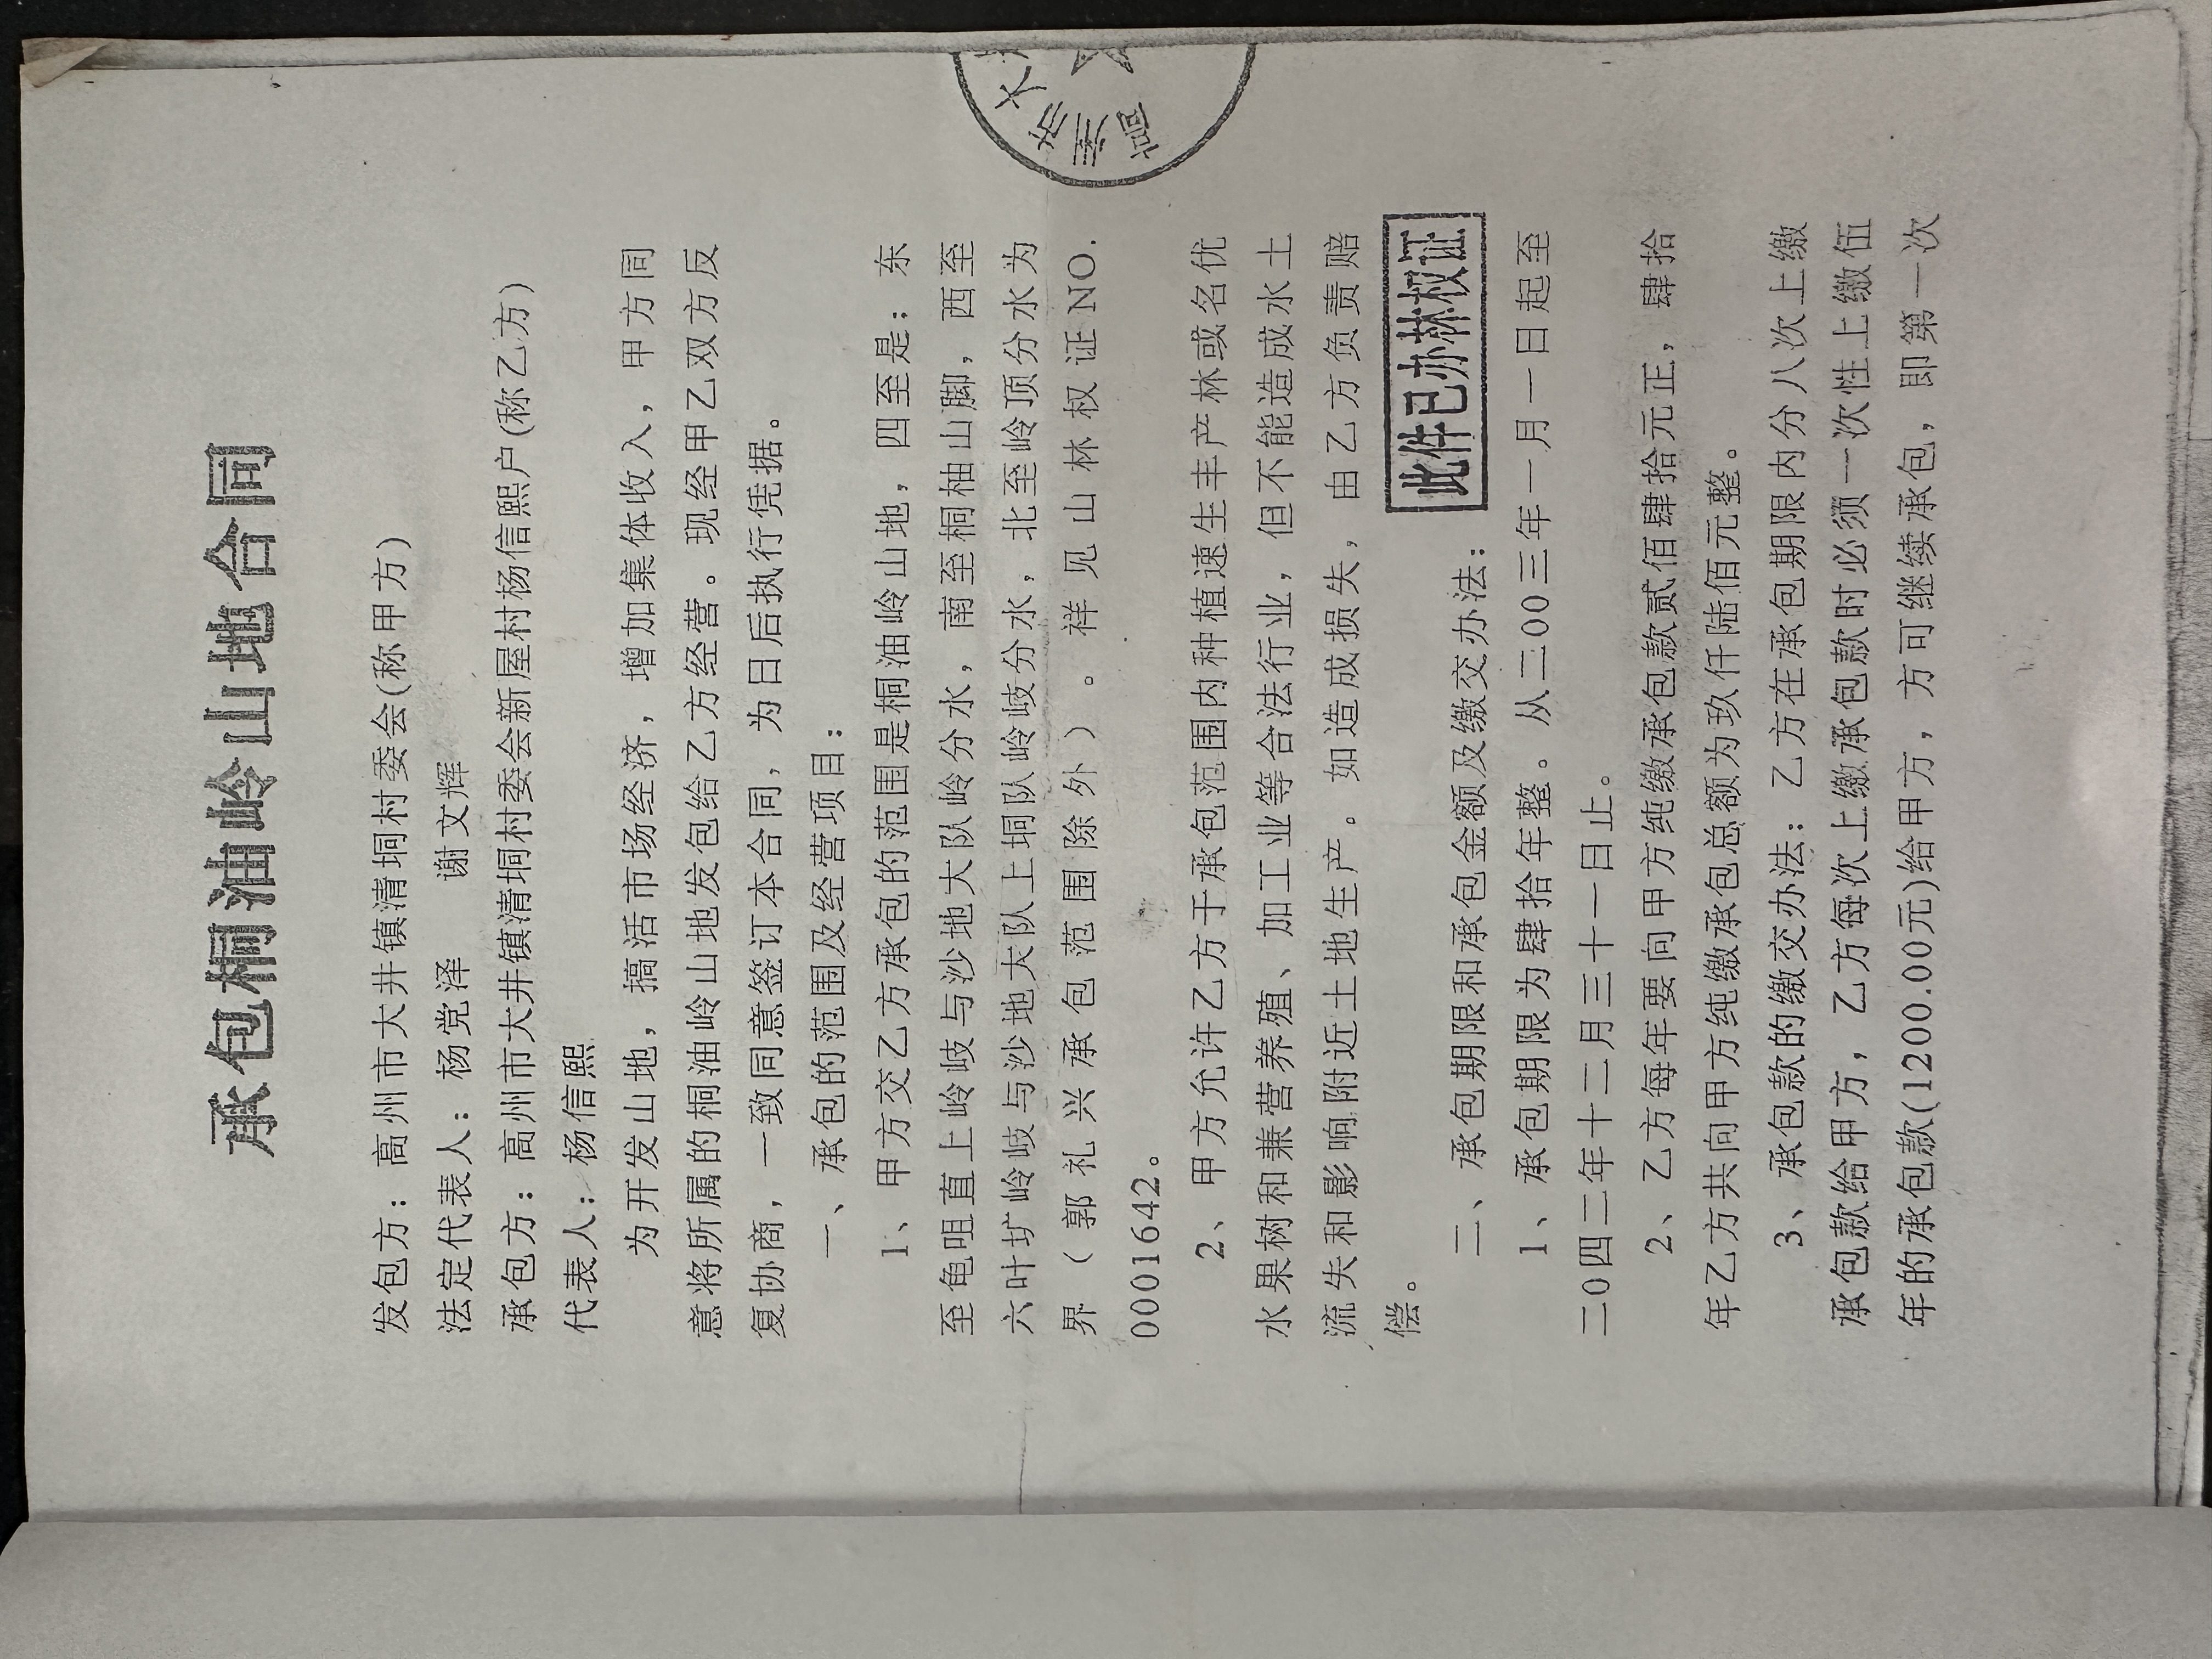 承包桐油岭山地合同
发包方：高州市大井镇清垌村委会(称甲方)
法定代表人：杨党泽 谢文辉
承包方：高州市大井镇清垌村委会新屋村杨信熙户(称乙方)
代表人：杨信熙
为开发山地，搞活市场经济，增加集体收入，甲方同
意将所属的桐油岭山地发包给乙方经营。现经甲乙双方反
复协商，一致同意签订本合同，为日后执行凭据。
一、承包的范围及经营项目：
1、甲方交乙方承包的范围是桐油岭山地，四至是：东
至龟咀直上岭岐与沙地大队岭分水，南至桐柚山脚，西至
六叶圹岭岐与沙地大队上垌队岭岐分水，北至岭顶分水为
界（郭礼兴承包范围除外）。祥见山林权证NO.
0001642。
2、甲方允许乙方于承包范围内种植速生丰产林或名优
水果树和兼营养殖、加工业等合法行业，但不能造成水土
流失和影响附近土地生产。如造成损失，由乙方负责赔
偿。
此件已办林权证
二、承包期限和承包金额及缴交办法：
1、承包期限为肆拾年整。从二00三年一月一日起至
二0四二年十二月三十一日止。
2、乙方每年要向甲方纯缴承包款贰佰肆拾元正，肆拾
年乙方共向甲方纯缴承包总额为玖仟陆佰元整。
3、承包款的缴交办法：乙方在承包期限内分八次上缴
承包款给甲方，乙方每次上缴承包款时必须一次性上缴伍
年的承包款(1200.00元)给甲方，方可继续承包，即第一次